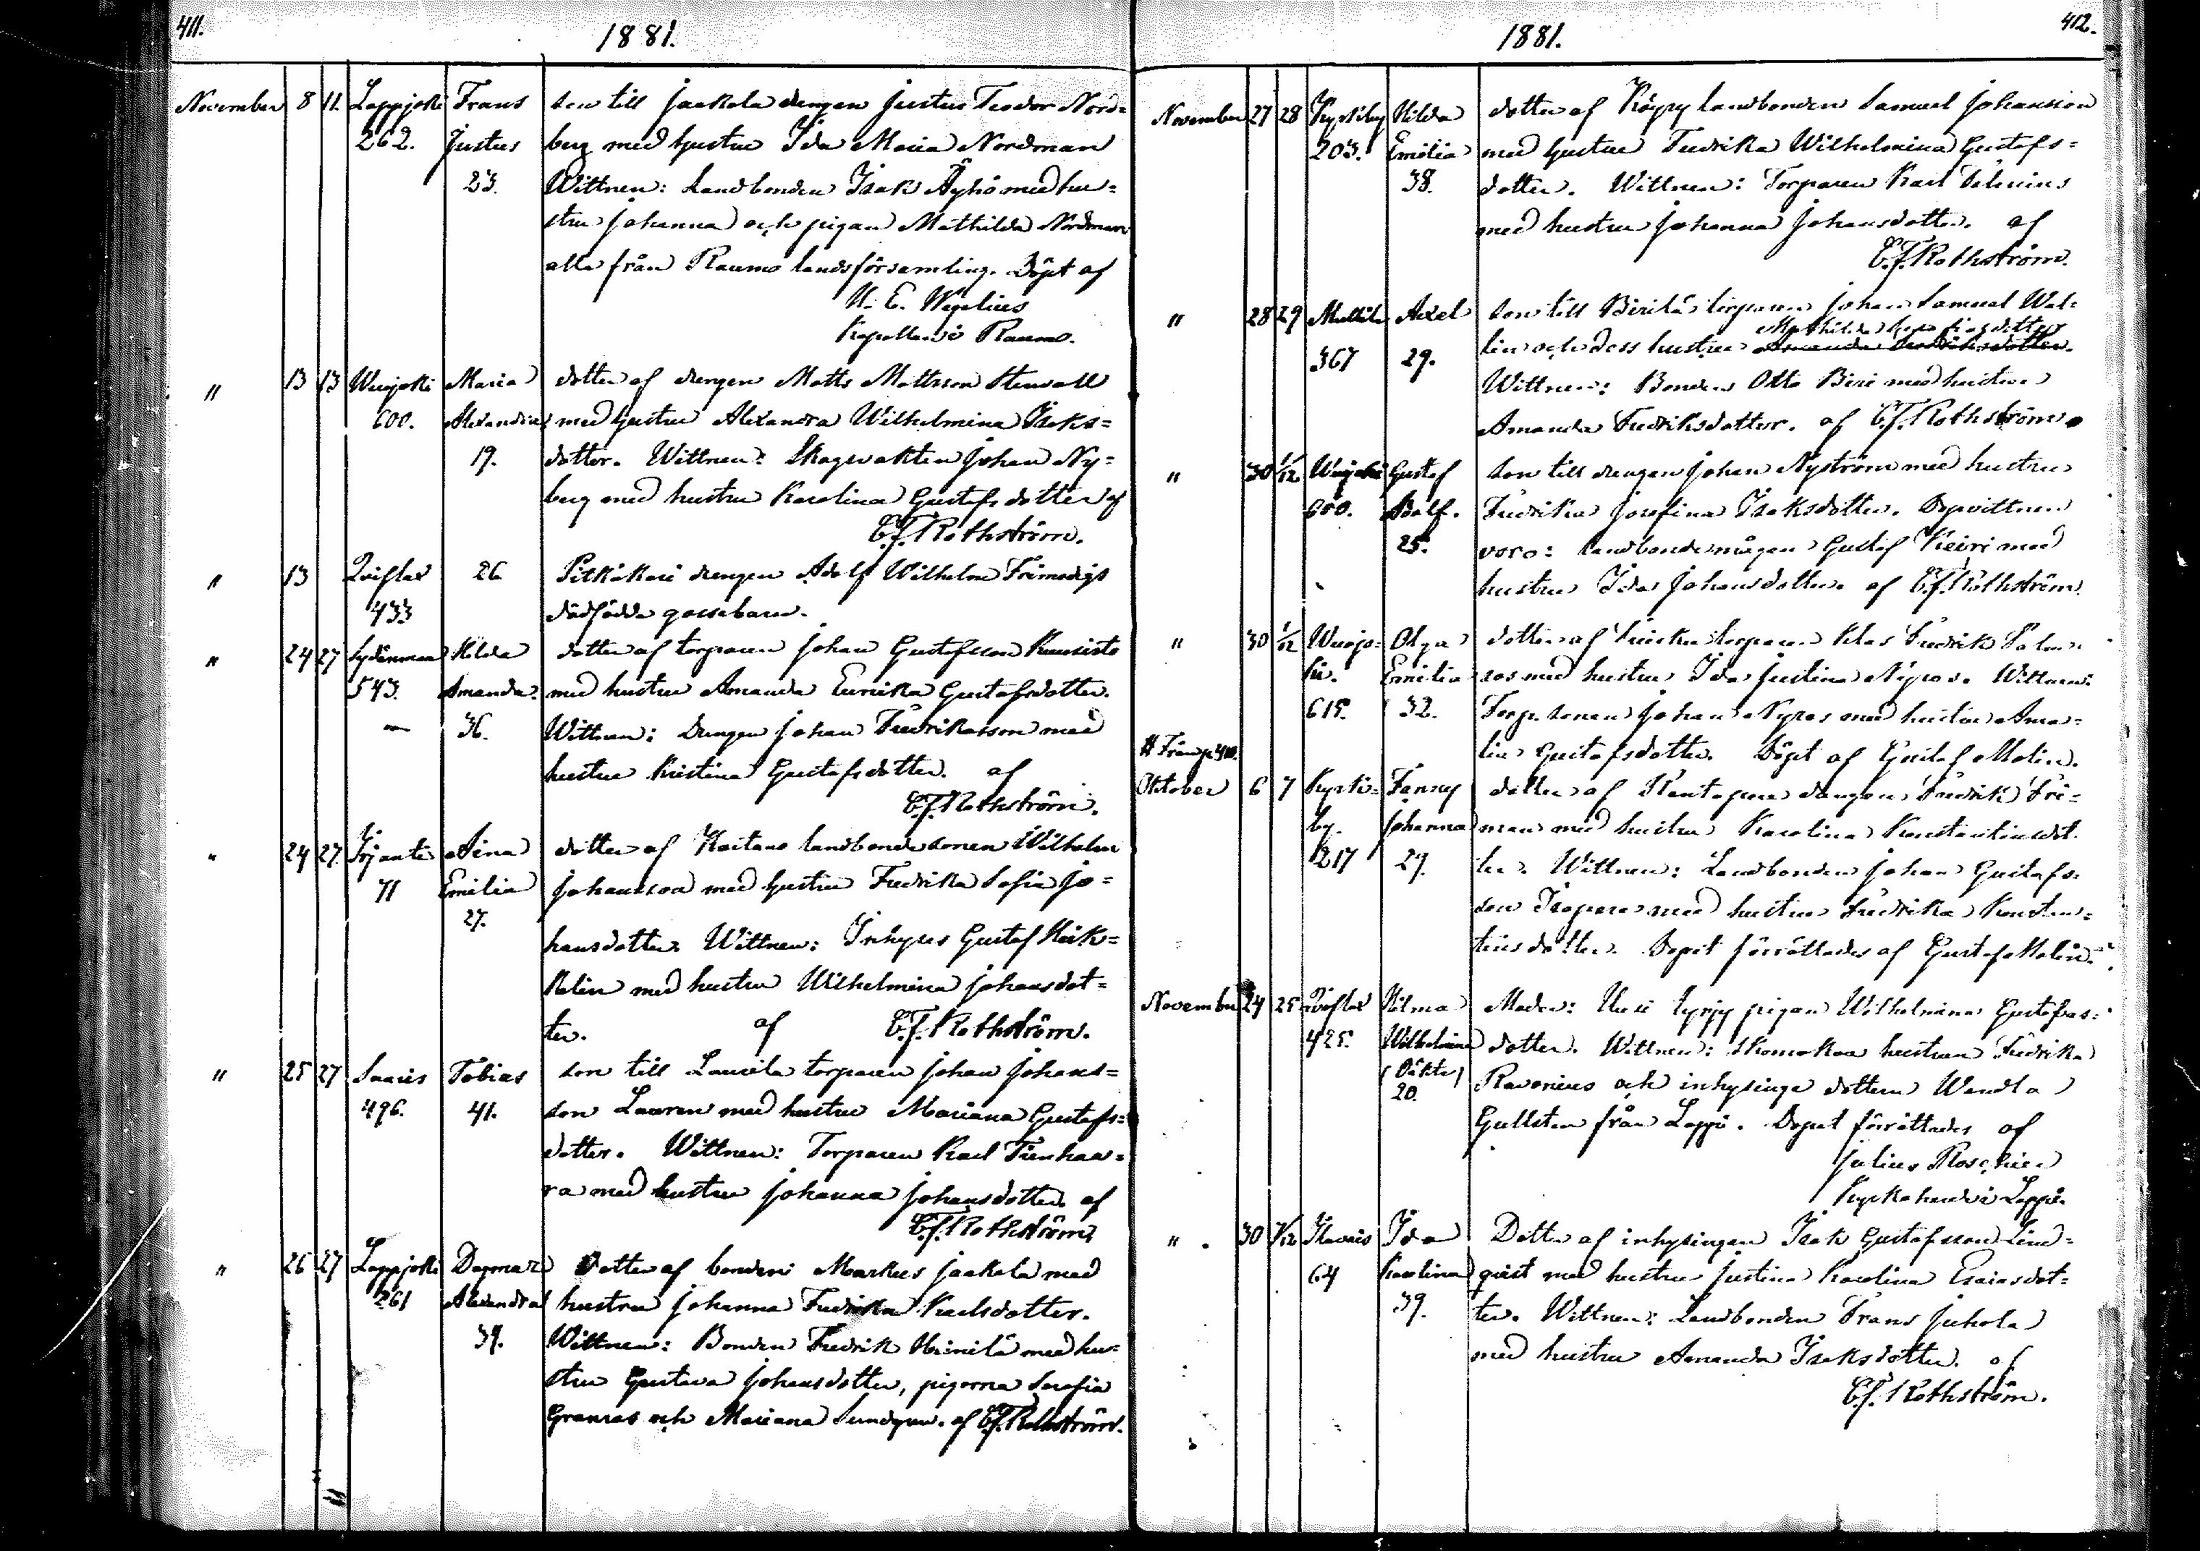 411.
1881.
November 8 11. Lappjoki Frans son till Jaakola drengen Justus Teodor Nord=
262. Justus berg med hustru Ida Maria Nordman
23. Wittnen: Landbonden Isak Äyhö med hu=
stru Johanna och pigan Mathilda Nordman
alla från Raumo landsförsamling. Döpt af
K. E. Wegelius
Kapellan i Raumo.
" 13 13 Wuojoki Maria dotter af drengen Matts Mattsson Stenvall
600. Alexandra med hustru Alexandra Wilhelmina Isaks=
19. dotter. Wittnen: Skogsvakten Johan Ny=
berg med hustru Karolina Gustafsdotter af
C.J. Rothström.
" 13 Qviflax 26 Pitkäkari drengen Adolf Wilhelm Frimodigs
433 dödfödda gossebarn.
" 24 27 Sydänmaa Hilda dotter af torparen Johan Gustafsson Kuusisto
543. Amanda. med hustru Amanda Eurika Gustafsdotter.
36. Wittnen: Drengen Johan Fredriksson med
hustru Kristina Gustafsdotter. af
C.J. Rothström.
" 24 27. Irjanti Aina dotter af Kaitano landbonde sonen Wilhelm
71 Emilia Johansson med hustru Fredrika Sofia Jo=
27. hansdotter. Wittnen: Inhyses Gustaf Heik=
kelin med hustru Wilhelmina Johansdot=
ter. af C.J. Rothström.
" 25 27 Saaris Tobias son till Laurila torparen Johan Johans=
496. 41. son Lauren med hustru Mariana Gustafs=
dotter. Wittnen: Torparen Karl Tienhaa=
ra med hustru Johanna Johansdotter. af
C.J. Rothström.
" 26 27 Lappjoki Dagmar Dotter af bonden Markus Jaakola med
261 Alexandra hustru Johanna Fredrika Karlsdotter.
39. Wittnen: Bonden Fredrik Heinilä med hu=
stru Gustava Johansdotter, pigorna Serafia
Granroos och Mariana Sundgren. af C.J. Rothström.
412.
1881.
November 27 28 Kyrkiby Hilda dotter af Köpry landbonden Samuel Johansson
203. Emilia med hustru Fredrika Wilhelmina Gustafs=
38. dotter. Wittnen: Torparen Karl Telenius
med hustru Johanna Johansdotter. af
C.J. Rothström.
" 28 29 Mullila Axel son till Birilä torparen Johan Samuel Wal=
Mathilda Josefinsdotter
367 29. lin och dess hustru Amanda Fredriksdotter.
Wittnen: Bonden Otto Biri med hustru
Amanda Fredriksdotter. af C.J. Rothström.
" 30 1/12 Wuojoki Gustaf son till drengen Johan Nyström med hustru
600. Adolf. Fredrika Josefina Isaksdotter. Dopvittnen
25. voro: landbondemågen Gustaf Keiri med
hustru Ida Johansdotter. af C.J. Rothström.
" 30 1/12 Wuojo= Olga dotter af torparen Klas Fredrik
ki. Emilia med hustru Ida Justina Nyroos. Wittnen:
615. 32. Torp. sonen Johan Nyroos med hustru Ama=
lia Gustafsdotter. Döpt af Gustaf Molin.
# Från p. 410.
Oktober 6 7 Kyrki= Fanny dotter af Rantapere drengen Fredrik Fri=
by. Johanna man med hustru Karolina Konstantinsdot=
217 29. ter. Wittnen: Landbonden Johan Gustafs=
son Isopere med hustru Fredrika Konstan=
tinsdotter. Dopet förrättades af Gustaf Molin.
November 24 25 Qviflax Hilma Moder: Uusi Syrjy pigan Wilhelmina Gustafs=
425. Wilhelmina dotter. Wittnen: Skomakar hustrun Fredrika
(Oäkta) Ravonius och inhysinge dottern Wendla
20. Gullsten från Lappi. Dopet förrättades af
Julius Roschier
Kyrkoherde i Lappi.
" 30 1/12 Ilavais Ida Dotter af inhysingen Isak Gustafsson Lind=
64 Karolina qvist med hustru Justina Karolina Esaiasdot=
39. ter. Wittnen: Landbonden Frans Juhola
med hustru Amanda Isaksdotter. af
C.J. Rothström.